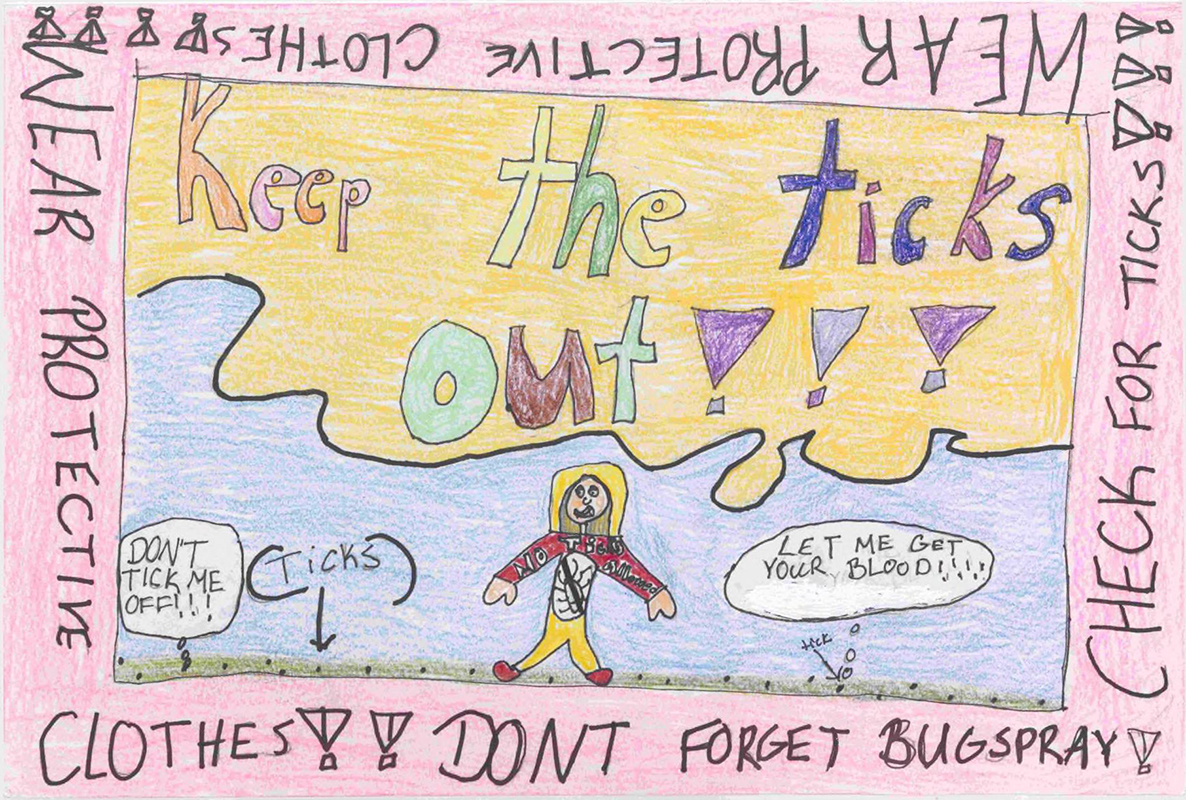 WEAR PROTECTIVE CLOTHES!!!!
WEAR PROTECTIVE
CLOTHES!! DONT FORGET BUGSPRAY!
CHECK FOR TICKS!!!
Keep the ticks
out!!!
DON'T
TICK ME
OFF!!!
(TICKS)
NO TICKS Allowed
LET ME GET
YOUR BLOOD!!!!
tick